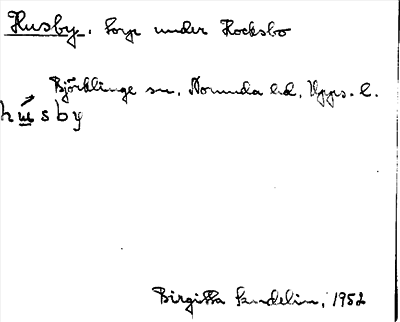 Husby, torp under Hocksbo
Björklinge sn, Norunda hd, Upps. l.
hú̱sby
Birgitta Sundelin, 1952